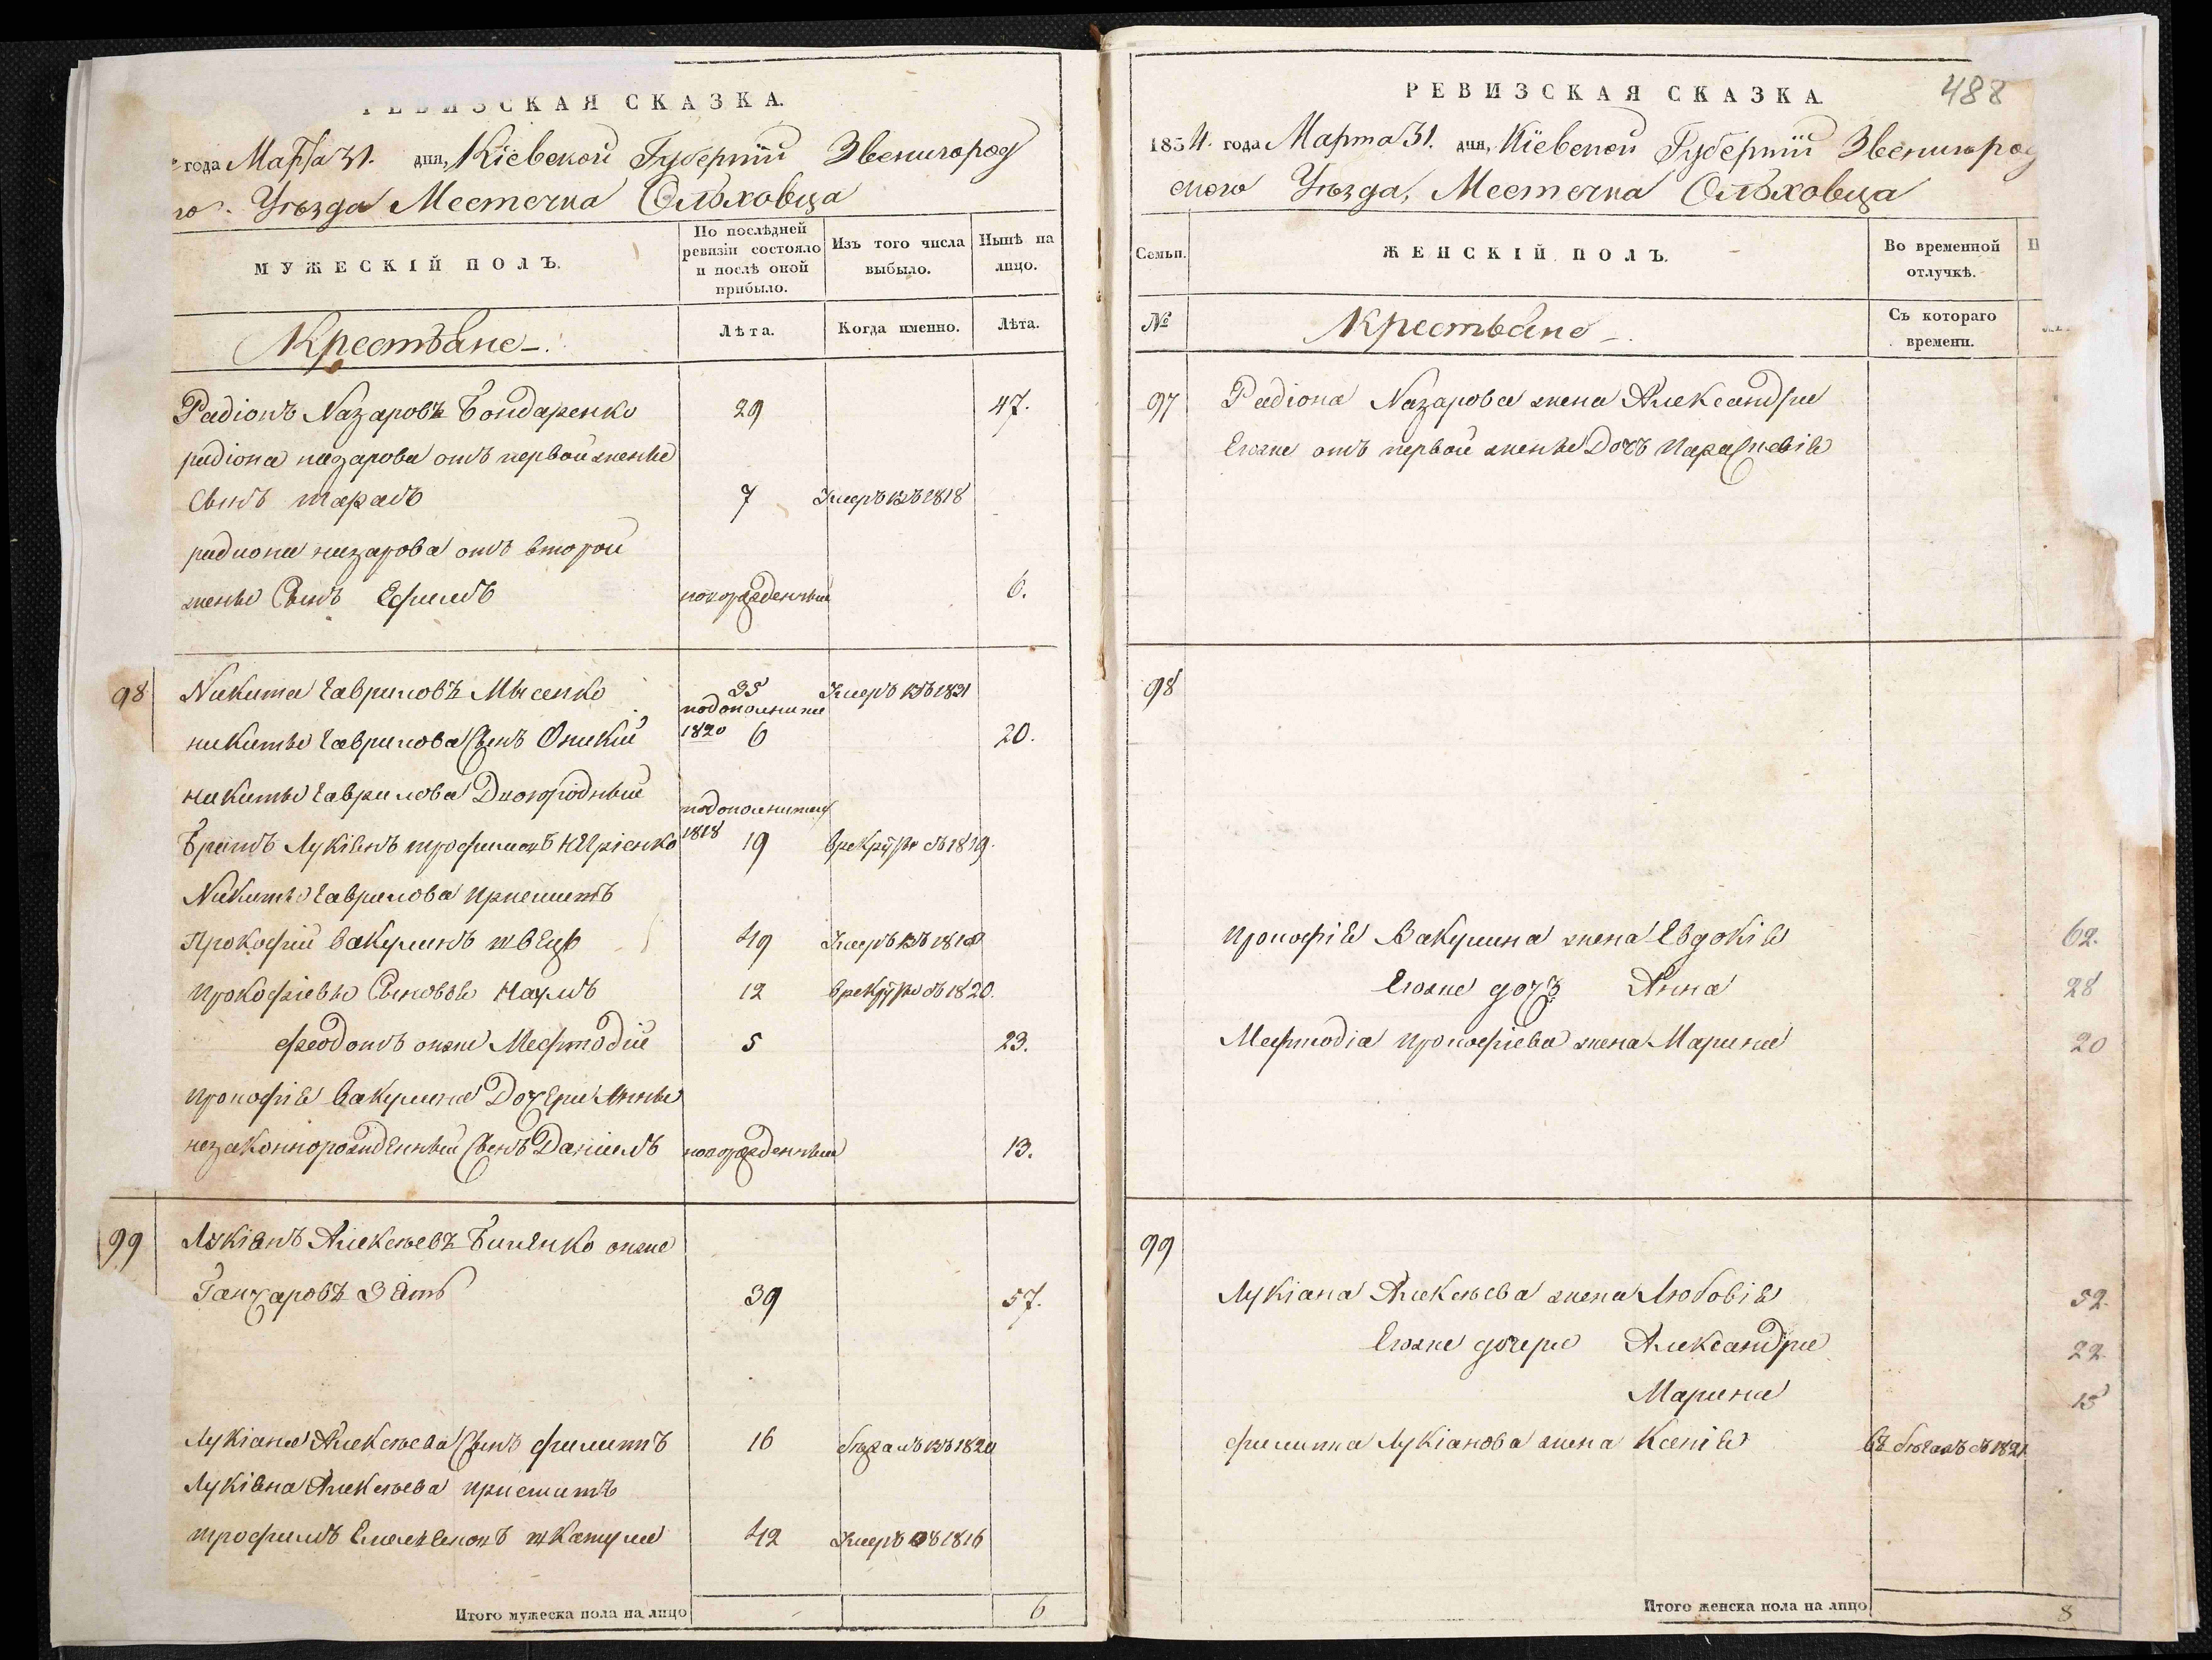 РЕВИЗСКАЯ СКАЗКА.
года Марта 31. дня, Кіевской Губерніи Звенигород
го. Уѣзда Местечка Ольховца
МУЖЕСКІЙ ПОЛЪ.
По послѣдней ревизіи состояло и послѣ оной прибыло.
Изъ того числа выбыло.
Нынѣ на лицо.
Крестьяне
Лѣта.
Когда именно.
Лѣта.
Радіонъ Назаровъ Бондаренко 29 47.
радіона назарова отъ первой жены
Сынъ тарасъ 7 Умеръ въ 1818
радиона назарова отъ второй
жены Сынъ Ефимъ новорожденный 6.
98 Никита Гавриловъ Мысенко 35 Умеръ въ 1831
никиты Гаврилова Сынъ Оникій подополнит 1820 6 20.
никиты Гаврилова Двоюродный
Братъ Лукіянъ трофимовъ подополнит 1818 19 врекруты въ 1819.
Никиты Гаврилова Приемитъ
Прокофий Вакулинъ швецъ 49 Умеръ въ 1818
Прокофіевы Сыновья Наумъ 12 врекруты въ 1820.
феодотъ онже Мефтодій 5 23.
Прокофія Вакулина Дочери Анны
незаконнорожденный Сынъ Даніилъ новорожденный 13.
99 Лукіянъ Алексѣевъ Биленко онже
Ганчаровъ Зять 39 57.
Лукіана Алексѣева Сынъ филипъ 16 бѣжалъ въ 1820
Лукіяна Алексѣева Приемитъ
трофимъ 42 Умеръ въ 1816
Итого мужеска пола на лицо 6
488
РЕВИЗСКАЯ СКАЗКА.
1854. года Марта 31. дня, Кіевской Губерніи Звенигород
ского Уѣзда, Местечка Ольховца
Семьи.
ЖЕНСКІЙ ПОЛЪ.
Во временной отлучкѣ.
№
Крестьяне
Съ котораго времени.
97 Радіона Назарова жена Александра
Егоже отъ первой жены Дочь Параскевія
98
Прокофія Вакулина жена Евдокія 62.
Егоже дочь Анна 28
Мефтодіа Прокофіева жена Марина 20
99
Лукіана Алексѣева жена Любовія 52.
Егоже дочери Александра 22.
Марина 15
филипа Лукіанова жена Ксенія въ бѣгахъ въ 1821
Итого женска пола на лицо 8